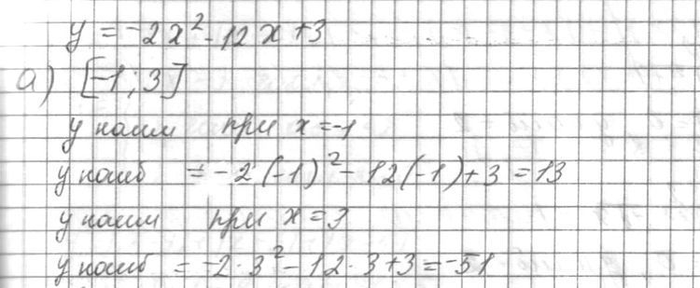 y = -2x² - 12x + 3
а) [-1; 3]
y наим при x = -1
y наиб = -2(-1)² - 12(-1) + 3 = 13
y наим при x = 3
y наиб = -2·3² - 12·3 + 3 = -51